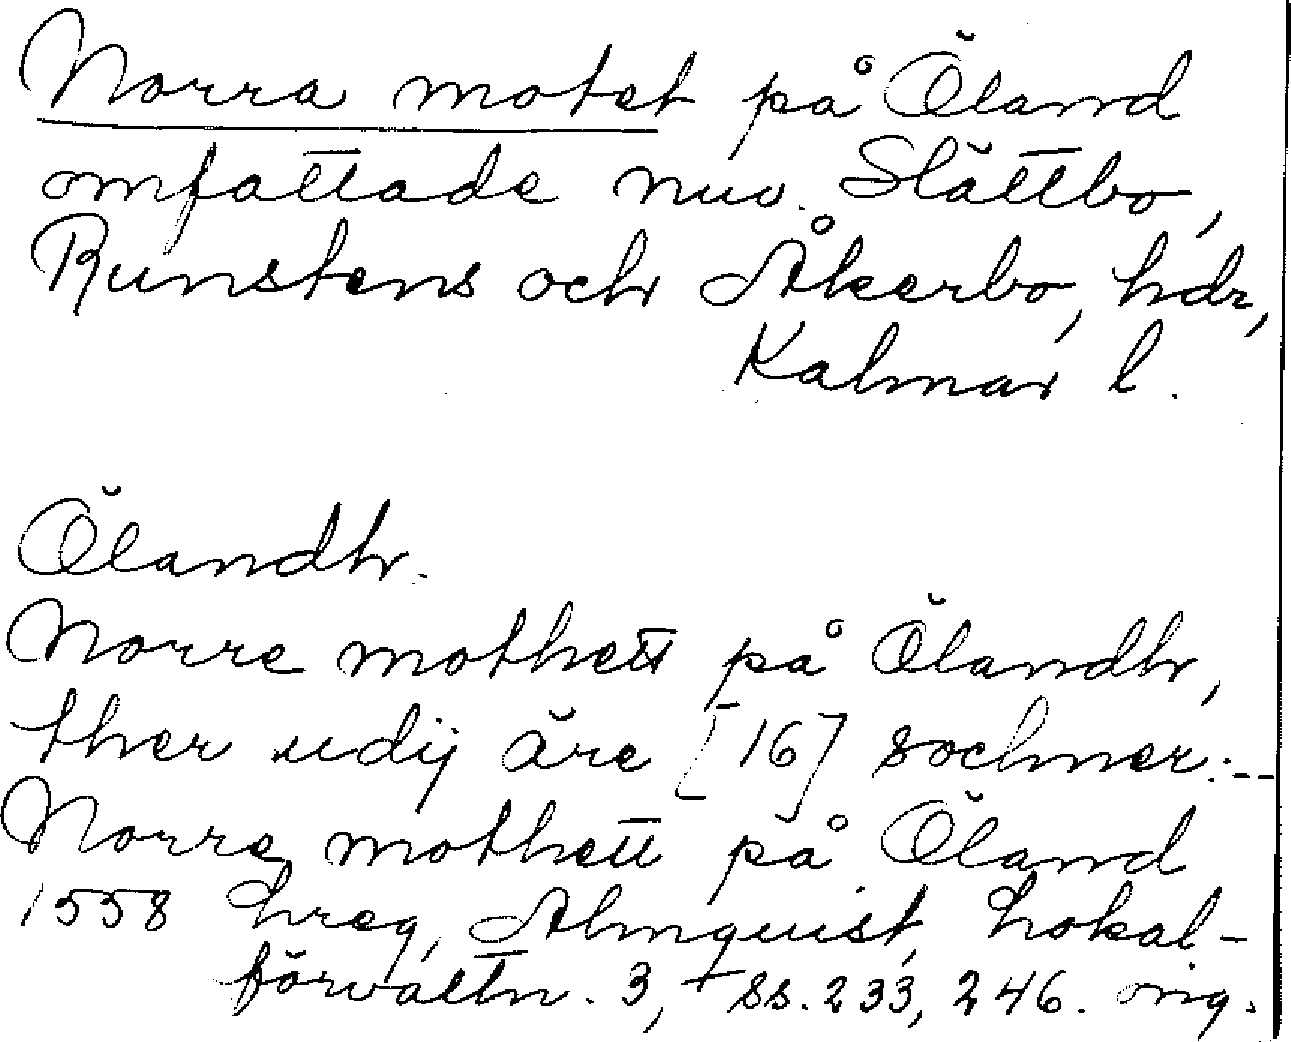 Norra motet på Öland
omfattade nuv. Slättbo,
Runstens och Åkerbo, hdr,
Kalmar l.
Ölandh.
Norre mothett på Ölandh,
ther udij äre [16] sochner:--
Norre mothett på Öland
1558 hreg, Almquist, Lokal-
förvaltn. 3, ss. 233, 246. orig.